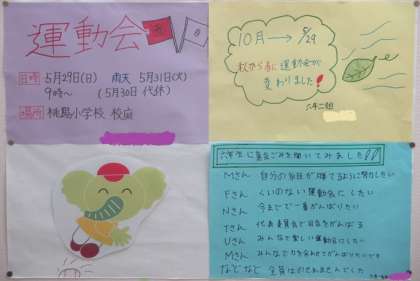 運動会
日時 5月29日(日) 雨天 5月31日(火)
9時〜 (5月30日 代休)
場所 桃島小学校 校庭
10月→5/29
秋から春に運動会が
変わりました!
六年二組
六年生に意気ごみを聞いてみました!!
Mさん 自分の団が勝てるように努力したい
Fさん くいのない運動会にしたい
Nさん 今までで一番がんばりたい
Tさん 代表委員会で司会をがんばる
Uさん みんなで楽しい運動会にしたい
Mさん みんなで力を合わせてがんばりたいです
などなど 全員はのせれませんでした